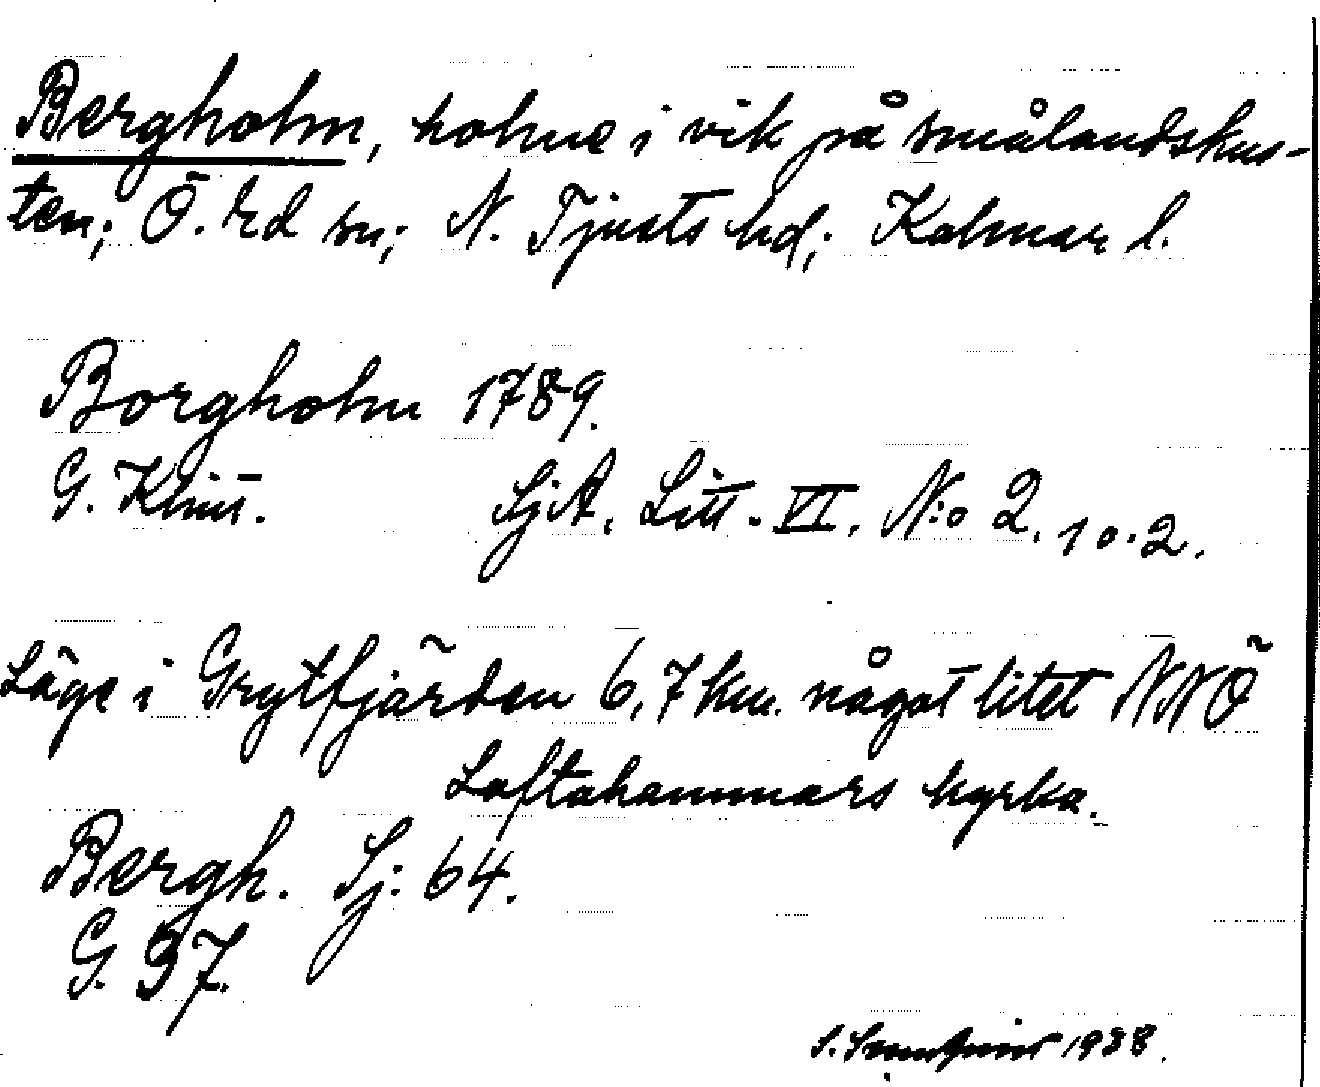 Bergholm, holme i vik på smålandskus-
ten; Ö. Ed sn; N. Tjusts hd; Kalmar l.
Borgholm 1789.
G. Klint. SjA. Litt. VI. N:o 2. 10.2.
Läge i Grytfjärden 6,7 km. något litet NNÖ
Loftahammars kyrka.
Bergh. Sj: 64.
G. 37.
S. 1938.